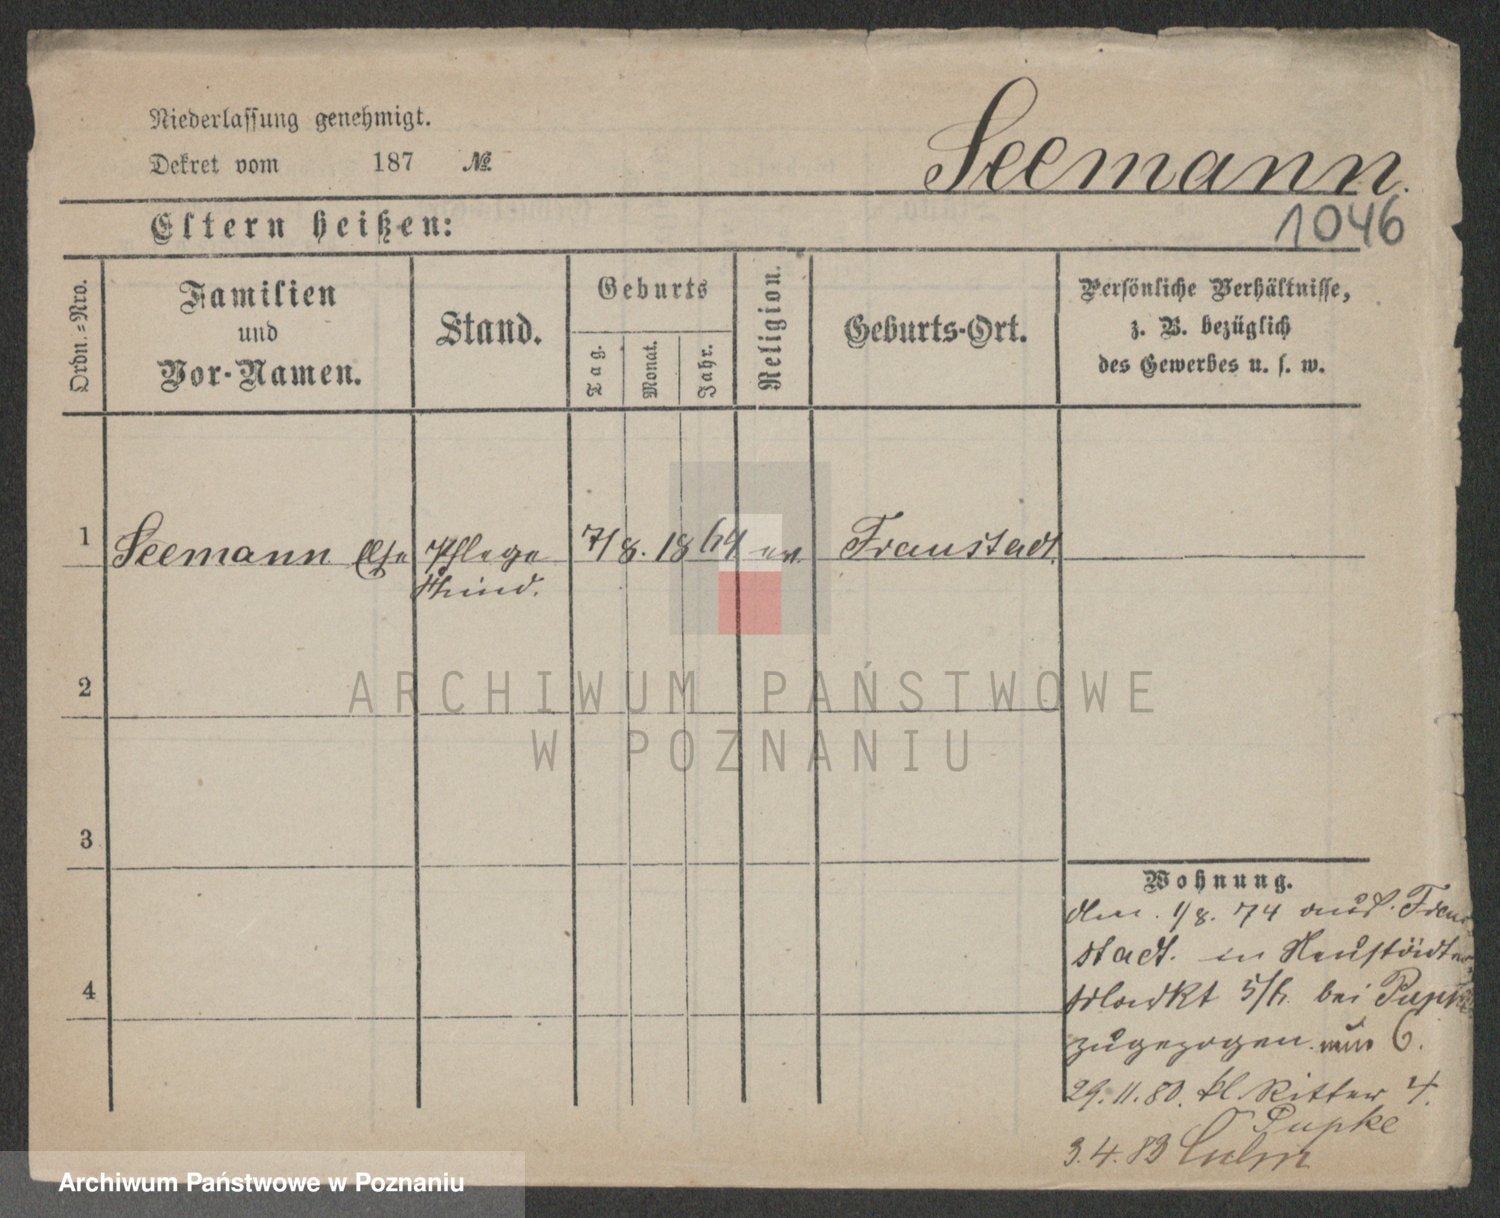 Niederlassung genehmigt.
Dekret vom 187 №
Seemann.
1046
Eltern heißen:
Ordn.-Nro.
Familien
und
Vor-Namen.
Stand.
Geburts
Tag.
Monat.
Jahr.
Religion.
Geburts-Ort.
Persönliche Verhältnisse,
z. B. bezüglich
des Gewerbes u. s. w.
1 Seemann Else Pflege 7/8. 1864 ev. Fraustadt.
Kind.
2
3
4
Wohnung.
den. 1/8. 74 aus. Frau
stadt. in Neustädter
Markt 5/6. bei Pupke
zugezogen. nun 6.
29.11.80. kl. Ritter 4.
Pupke
3.4.83 Culm
ARCHIWUM PAŃSTWOWE
W POZNANIU
Archiwum Państwowe w Poznaniu